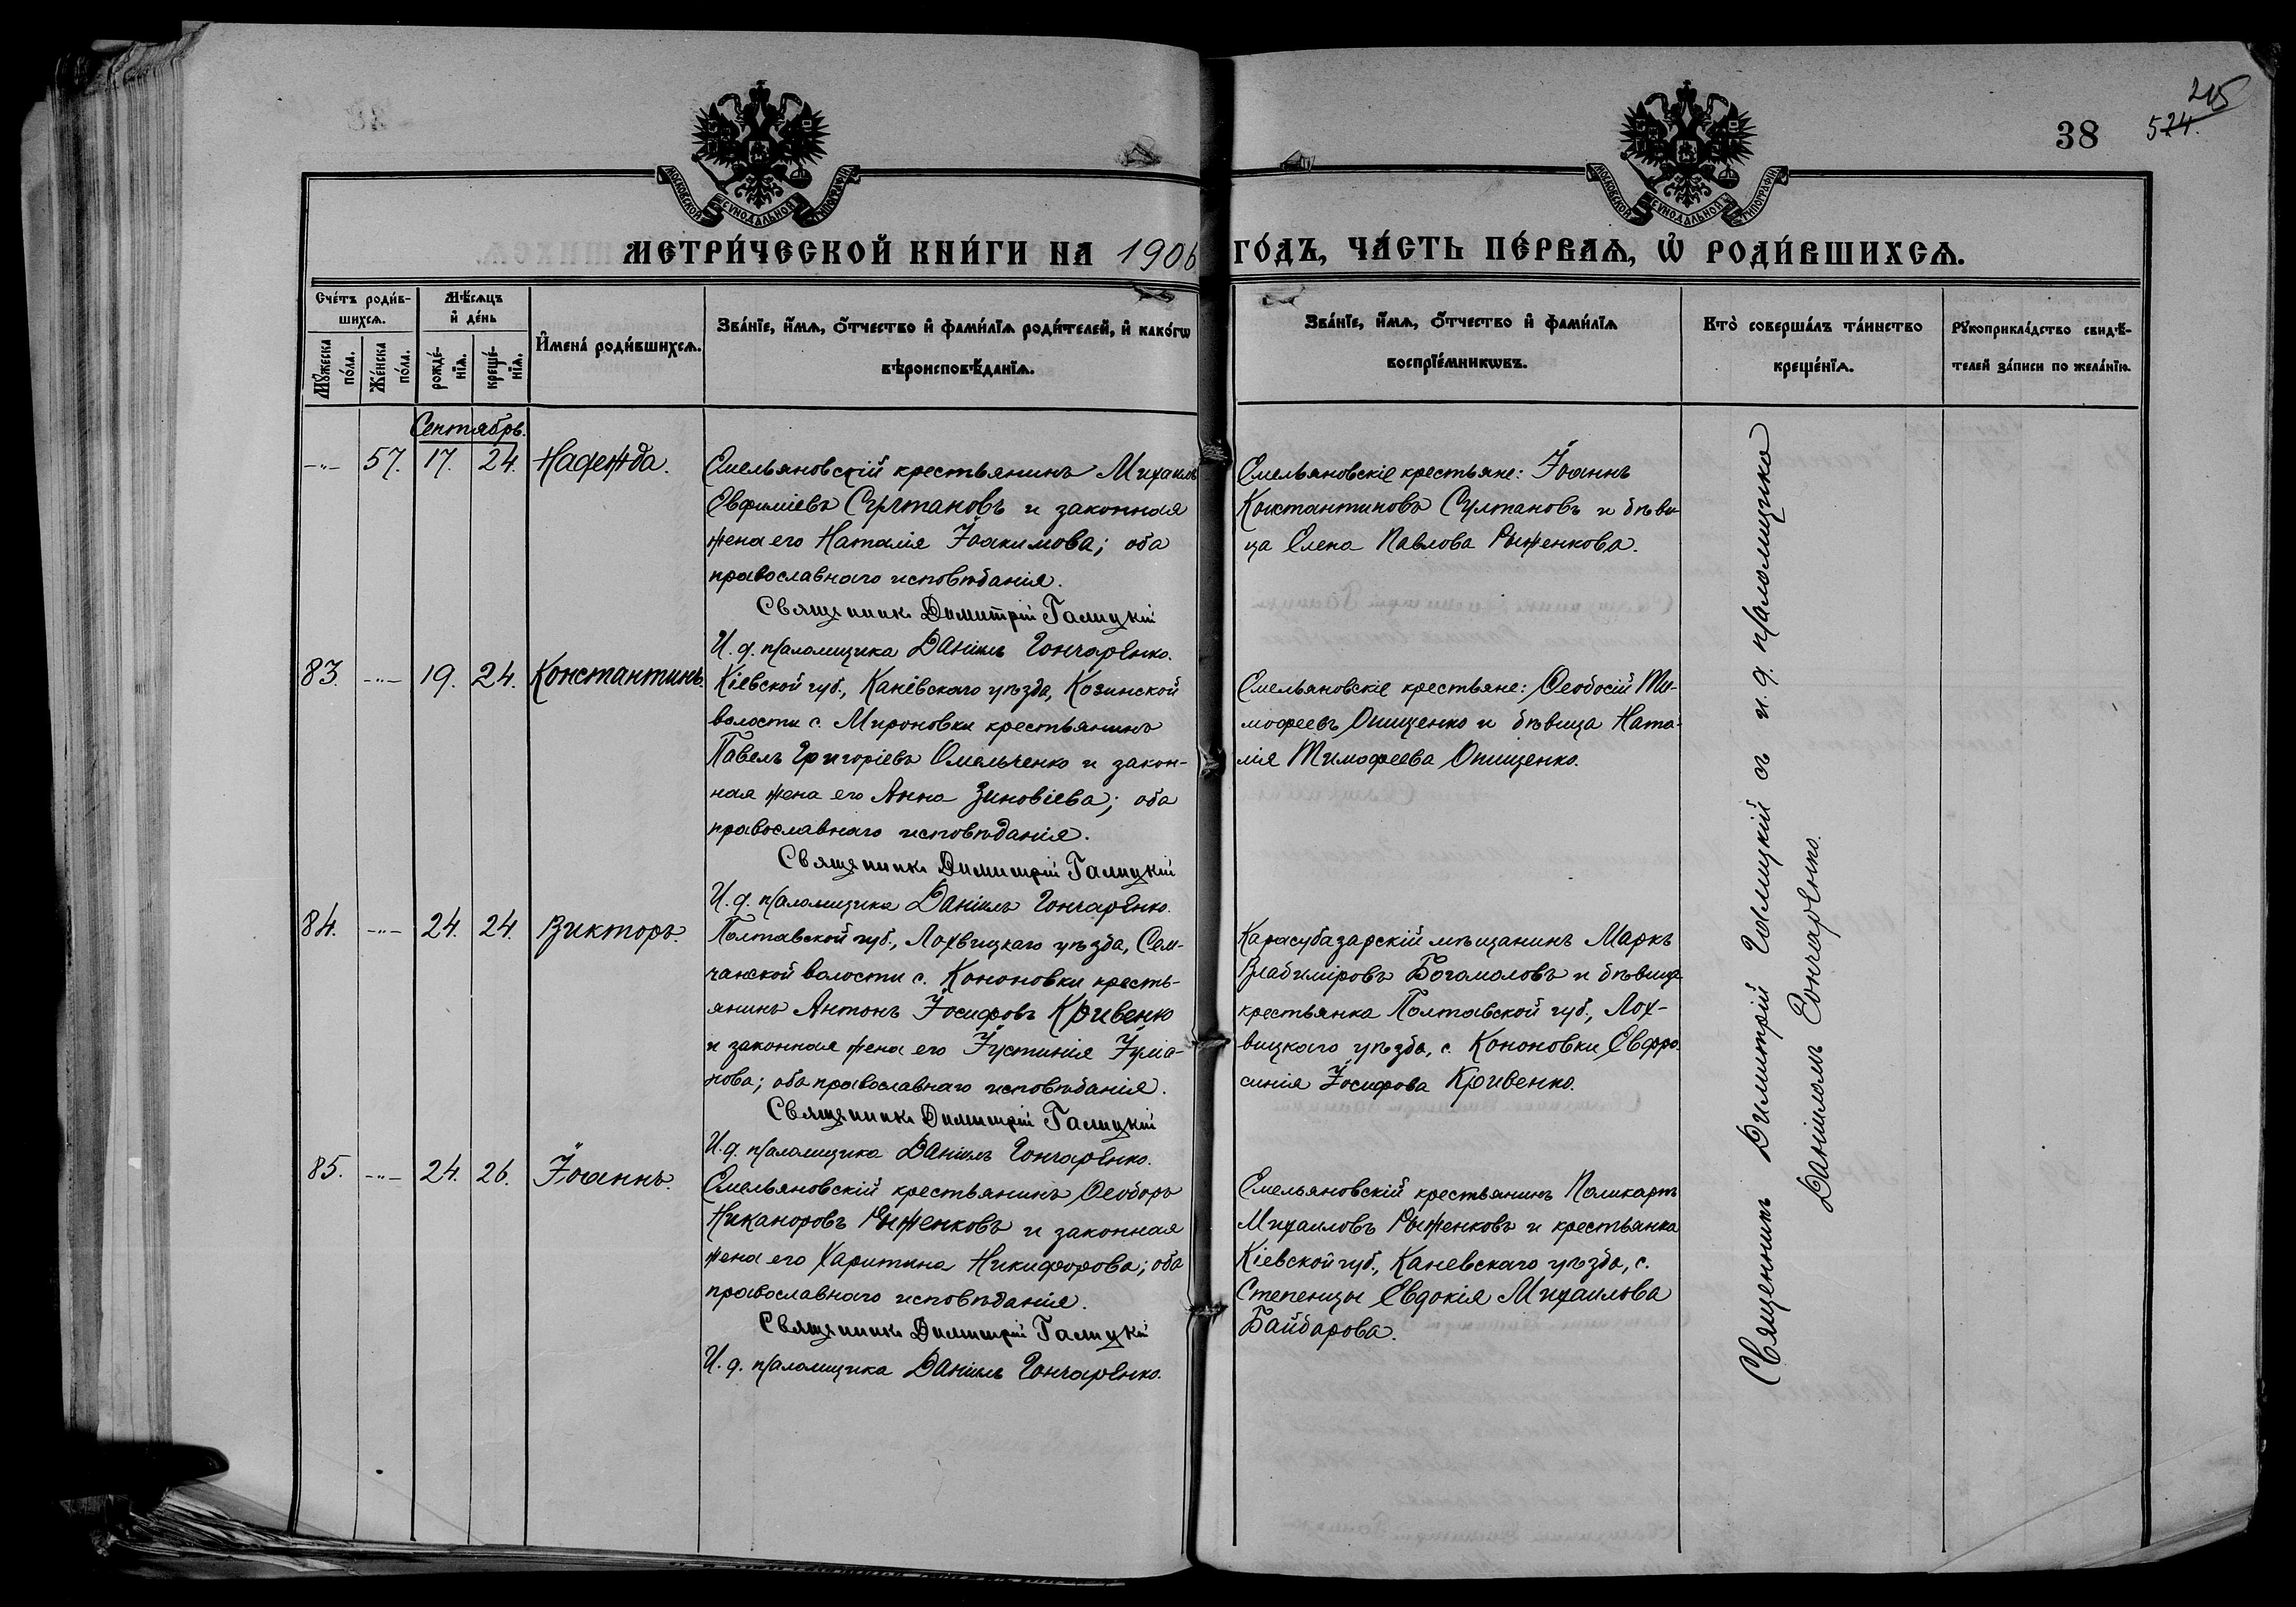 38
215
524.
МОСКОВСКОЙ СѴНОДАЛЬНОЙ ТИПОГРАФІИ
МОСКОВСКОЙ СѴНОДАЛЬНОЙ ТИПОГРАФІИ
МЕТРИ́ЧЕСКОЙ КНИ́ГИ НА 1906 ГО́ДЪ, ЧА́СТЬ ПЕ́РВАѦ, Ѡ҆ РОДИ́ВШИХСѦ.
Сче́тъ роди́в-
шихсѧ.
Мꙋ́жеска по́ла.
Же́нска по́ла.
Мѣ́сѧцъ
и҆ де́нь
рожде́-
нїѧ.
креще́-
нїѧ.
И҆мена̀ роди́вшихсѧ.
Зва́нїе, и҆́мѧ, ѻ҆́тчество и҆ фами́лїѧ роди́телей, и҆ како́гѡ
вѣроисповѣ́данїѧ.
Зва́нїе, и҆́мѧ, ѻ҆́тчество и҆ фами́лїѧ
воспрїе́мникѡвъ.
Кто̀ соверша́лъ та́инство
креще́нїѧ.
Рꙋкоприкла́дство свидѣ́-
телей за́писи по жела́нїю.
Сентябрь.
-"- 57. 17. 24. Надежда.
Емельяновскій крестьянинъ Михаилъ
Евфиміевъ Султановъ и законная
жена его Наталія Іоакимова; оба
православнаго исповѣданія.
Священникъ Димитрій Галицкій
И. д. псаломщика Даніилъ Гончаренко.
Емельяновскіе крестьяне: Іоаннъ
Константиновъ Султановъ и дѣви-
ца Елена Павлова Рыженкова.
83. -"- 19. 24. Константинъ.
Кіевской губ., Каневскаго уѣзда, Козинской
волости с. Мироновки крестьянинъ
Павелъ Григоріевъ Омельченко и закон-
ная жена его Анна Зиновіева; оба
православнаго исповѣданія.
Священникъ Димитрій Галицкій
И. д. псаломщика Даніилъ Гончаренко.
Емельяновскіе крестьяне: Ѳеодосій Ти-
мофеевъ Онищенко и дѣвица Ната-
лія Тимофеева Онищенко.
84. -"- 24. 24. Викторъ.
Полтавской губ., Лохвицкаго уѣзда, Сен-
чанской волости с. Кононовки кресть-
янинъ Антонъ Іосифовъ Кривенко
и законная жена его Іустинія Іуліа-
нова; оба православнаго исповѣданія.
Священникъ Димитрій Галицкій
И. д. псаломщика Даніилъ Гончаренко.
Карасубазарскій мѣщанинъ Маркъ
Владиміровъ Богомоловъ и дѣвица
крестьянка Полтавской губ., Лох-
вицкаго уѣзда, с. Кононовки Евфро-
синія Іосифова Кривенко.
85. -"- 24. 26. Іоаннъ.
Емельяновскій крестьянинъ Ѳеодоръ
Никаноровъ Рыженковъ и законная
жена его Харитина Никифорова; оба
православнаго исповѣданія.
Священникъ Димитрій Галицкій
И. д. псаломщика Даніилъ Гончаренко.
Емельяновскій крестьянинъ Поликарпъ
Михаиловъ Рыженковъ и крестьянка
Кіевской губ., Каневскаго уѣзда, с.
Степенцы Евдокія Михаилова
Байдарова.
Священникъ Димитрій Галицкій съ и. д. псаломщика
Даніиломъ Гончаренко.